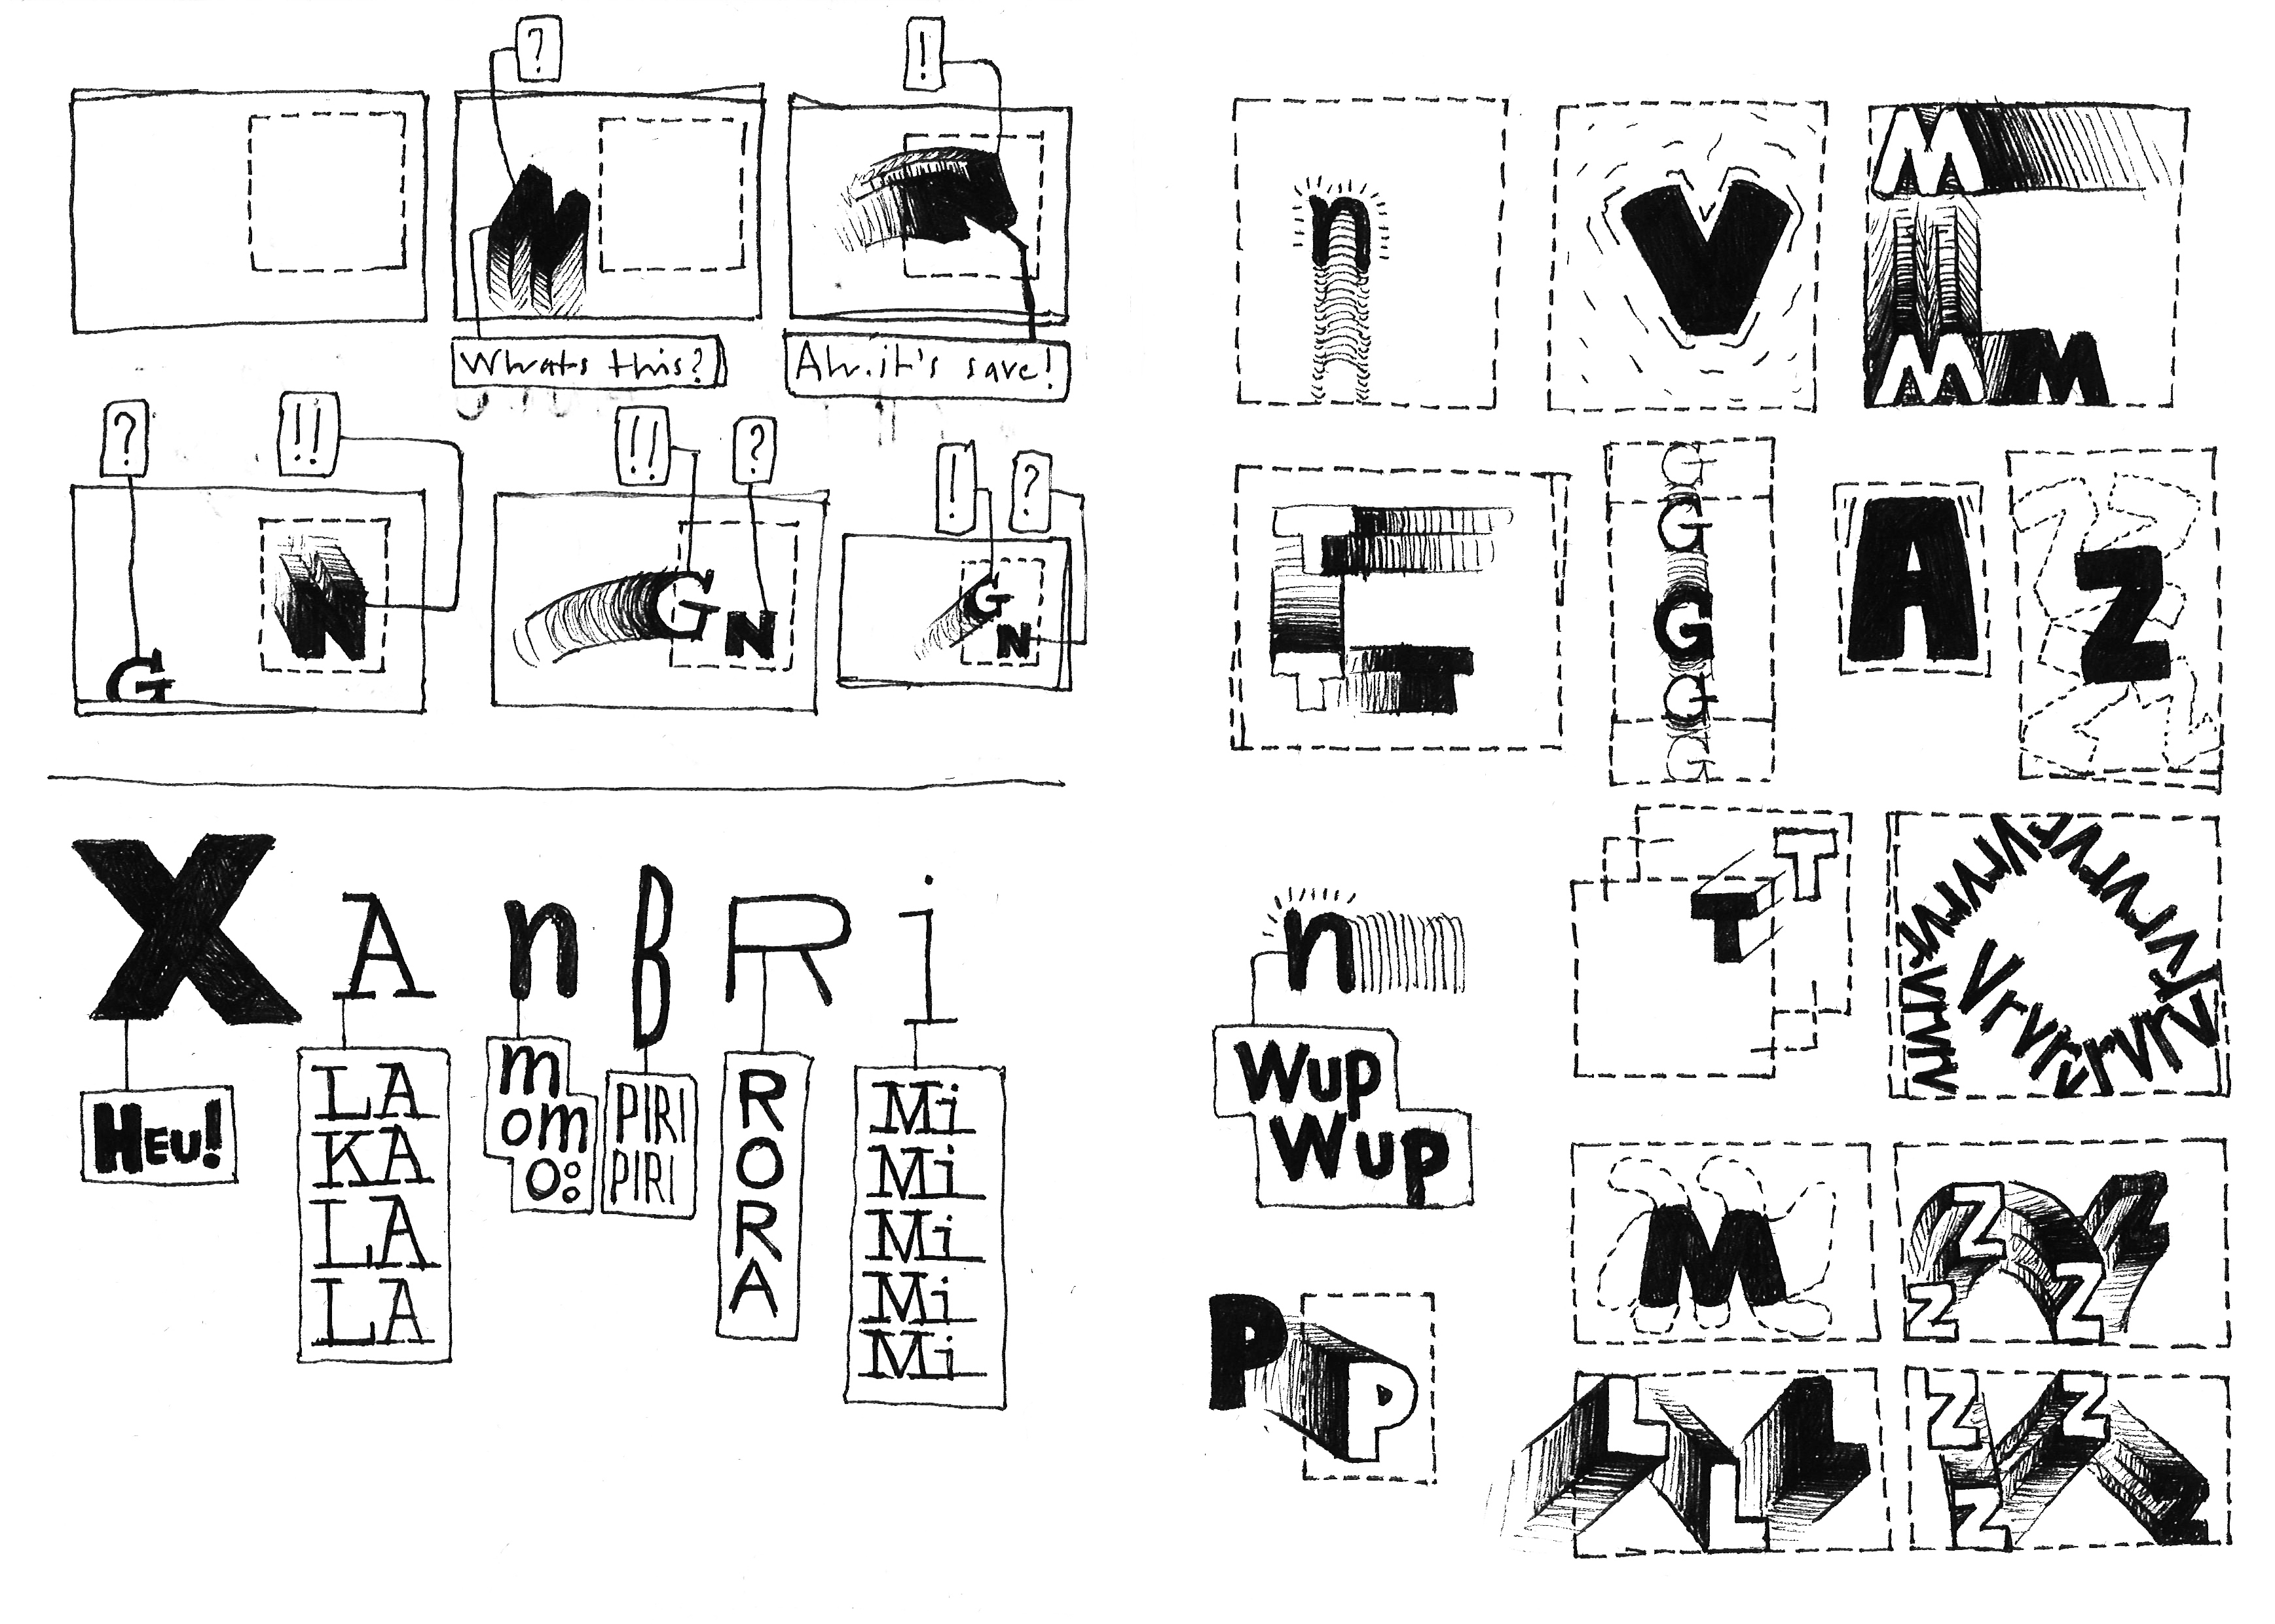 ?
!
Whats this?
Ah. it's save!
?
!!
!!
?
!
?
G
N
G
N
G
N
X
A
n
B
R
i
HEU!
LA
KA
LA
LA
m
om
o
PIRI
PIRI
R
O
R
A
Mi
Mi
Mi
Mi
Mi
n
V
M
M
M
G
G
G
G
G
A
Z
T
T
vrvrvr
n
Wup
Wup
P
P
M
Z
Z
Z
Z
L
L
L
Z
Z
Z
Z